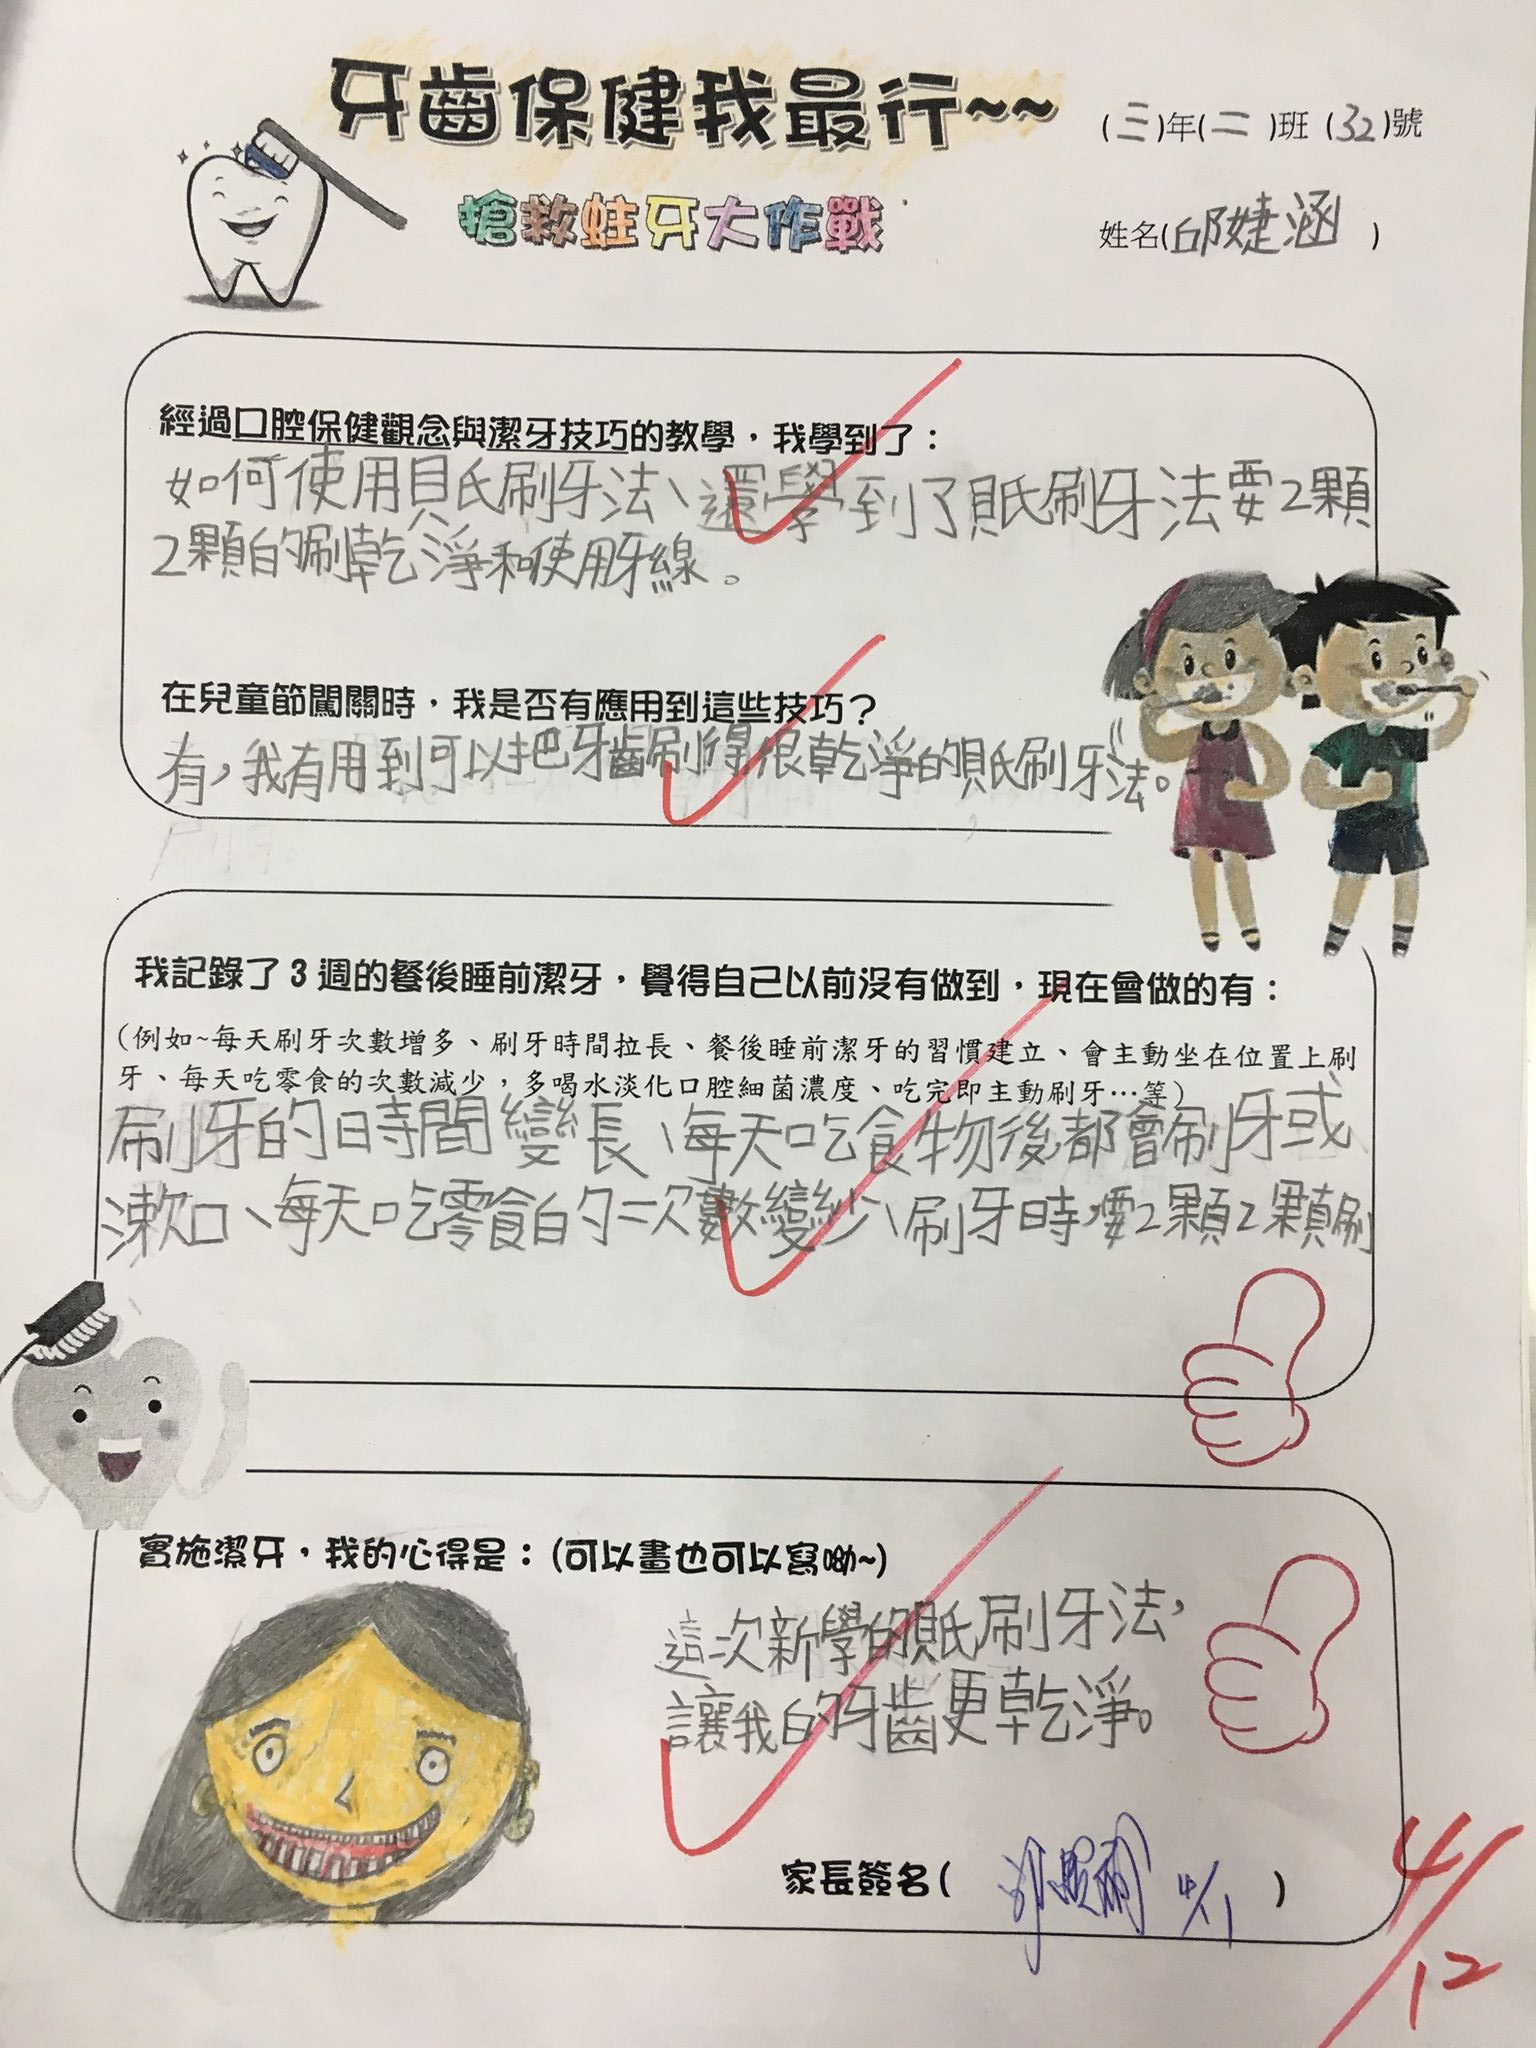 牙齒保健我最行~~
(三)年(二)班(32)號
搶救蛀牙大作戰
姓名(邱婕涵)
經過口腔保健觀念與潔牙技巧的教學，我學到了：
如何使用貝氏刷牙法、還學到了貝氏刷牙法要2顆
2顆的刷乾淨和使用牙線。
在兒童節闖關時，我是否有應用到這些技巧？
有，我有用到可以把牙齒刷得很乾淨的貝氏刷牙法。
我記錄了3週的餐後睡前潔牙，覺得自己以前沒有做到，現在會做的有：
(例如~每天刷牙次數增多、刷牙時間拉長、餐後睡前潔牙的習慣建立、會主動坐在位置上刷
牙、每天吃零食的次數減少，多喝水淡化口腔細菌濃度、吃完即主動刷牙…等)
刷牙的時間變長、每天吃食物後都會刷牙或
漱口、每天吃零食的次數變少、刷牙時要2顆2顆刷
實施潔牙，我的心得是：(可以畫也可以寫呦~)
這次新學的貝氏刷牙法，
讓我的牙齒更乾淨。
家長簽名( 4/11 )
4/12